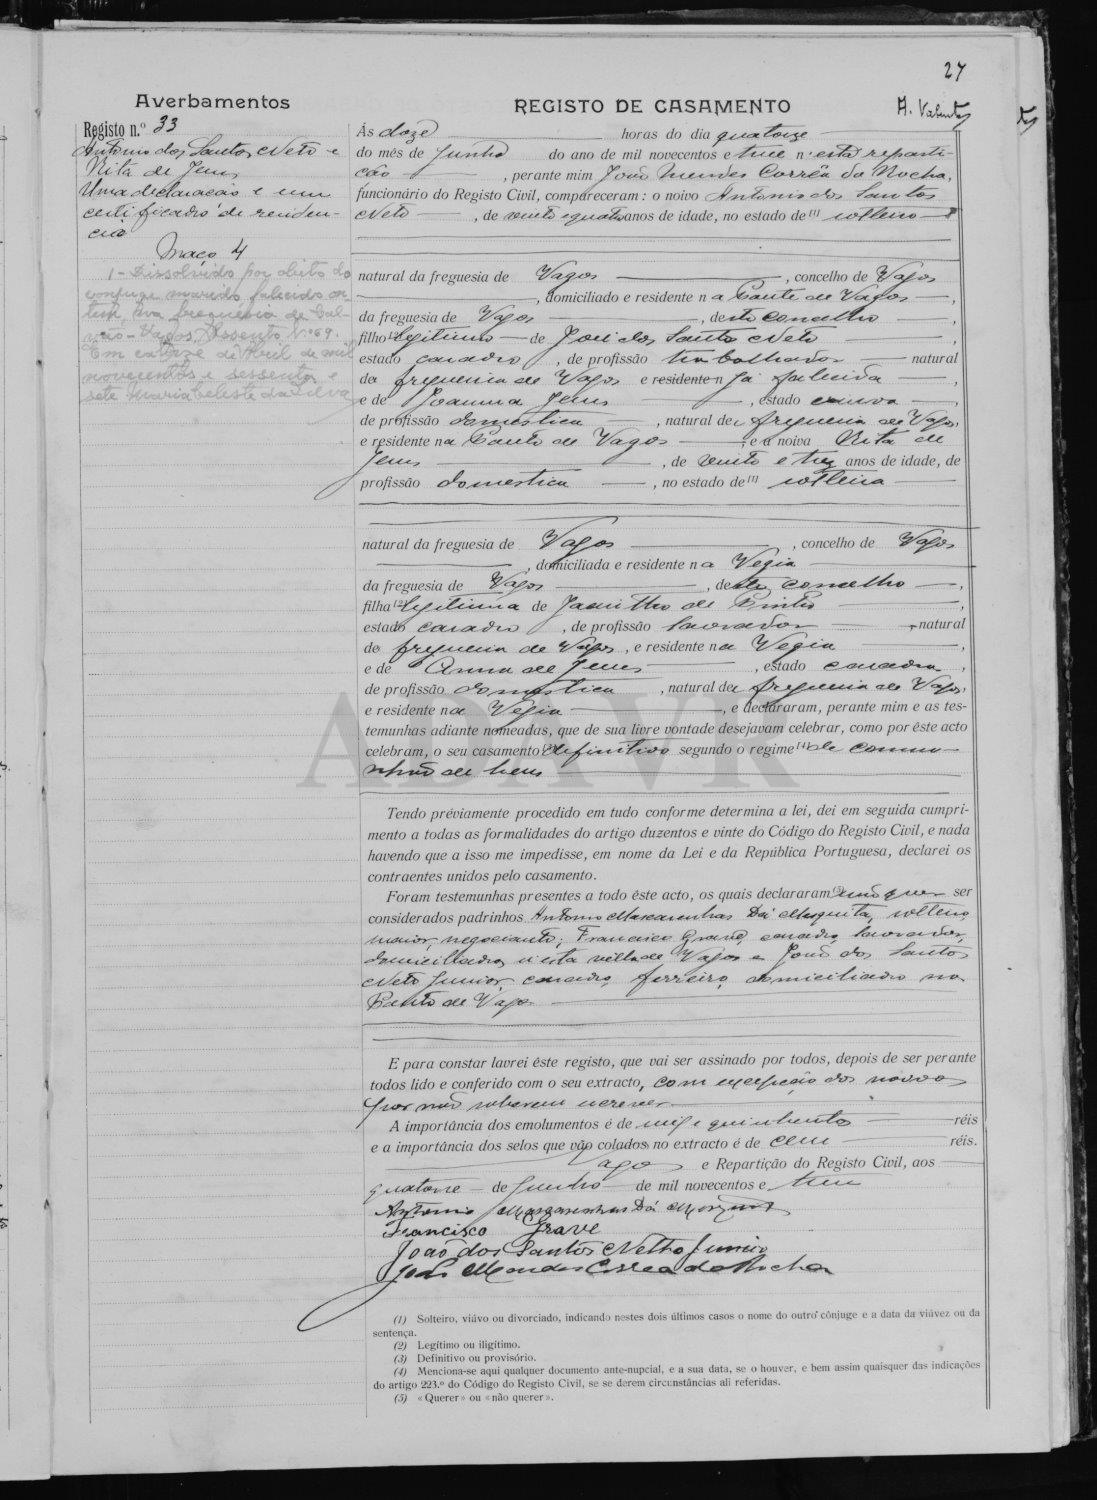 27
Averbamentos
REGISTO DE CASAMENTO
A. Valente
Registo n.º 33
Antonio dos Santos Neto e
Rita de Jesus
Uma declaração e um
certificado de residen-
cia
Maço 4
1 - Dissolvido por obito do
conjuge marido falecido
freguesia de Cal-
vão - Vagos, Assento N.º 69.
Em catorze de Abril de mil
novecentos e sessenta e
sete Maria Celeste da Silva
Ás doze horas do dia quatorze
do mês de Junho do ano de mil novecentos e treze n'esta reparti-
ção, perante mim João Mendes Corrêa da Rocha,
funcionário do Registo Civil, compareceram: o noivo Antonio dos Santos
Neto, de vinte e quatro anos de idade, no estado de (1) solteiro
natural da freguesia de Vagos, concelho de Vagos
, domiciliado e residente n a de Vagos,
da freguesia de Vagos, deste concelho,
filho (2) legitimo de José dos Santos Neto,
estado casado, de profissão trabalhador natural
da freguesia de Vagos e residente n já falecido,
e de Joanna Jesus, estado viuva,
de profissão domestica, natural da freguesia de Vagos,
e residente na de Vagos, e a noiva Rita de
Jesus, de vinte e trez anos de idade, de
profissão domestica, no estado de (1) solteira
natural da freguesia de Vagos, concelho de Vagos
, domiciliada e residente n a Vegia
da freguesia de Vagos, deste concelho,
filha (2) legitima de de,
estado casado, de profissão lavrador, natural
da freguesia de Vagos, e residente na Vegia,
e de Anna de Jesus, estado casada,
de profissão domestica, natural da freguesia de Vagos,
e residente na Vegia, e declararam, perante mim e as tes-
temunhas adiante nomeadas, que de sua livre vontade desejavam celebrar, como por êste acto
celebram, o seu casamento (3) definitivo segundo o regime (4) de commu-
nhão de bens
Tendo préviamente procedido em tudo conforme determina a lei, dei em seguida cumpri-
mento a todas as formalidades do artigo duzentos e vinte do Código do Registo Civil, e nada
havendo que a isso me impedisse, em nome da Lei e da República Portuguesa, declarei os
contraentes unidos pelo casamento.
Foram testemunhas presentes a todo êste acto, os quais declararam (5) não querer ser
considerados padrinhos Antonio Mascarenhas Da Mesquita, solteiro,
maior, negociante; Francisco Grave, casado, lavrador,
domiciliados n'esta villa de Vagos e João dos Santos
Neto Junior, casado, ferreiro, domiciliado na
de Vagos
E para constar lavrei êste registo, que vai ser assinado por todos, depois de ser perante
todos lido e conferido com o seu extracto, com excepção dos noivos
por não saberem escrever
A importância dos emolumentos é de mil e quinhentos réis
e a importância dos selos que vão colados no extracto é de cem réis.
Vagos e Repartição do Registo Civil, aos
quatorze de Junho de mil novecentos e treze
Antonio Mascarenhas Da Mesquita
Francisco Grave
João dos Santos Netto Junior
João Mendes Correa da Rocha
ADAVR
(1) Solteiro, viúvo ou divorciado, indicando nestes dois últimos casos o nome do outro cônjuge e a data da viúvez ou da
sentença.
(2) Legítimo ou iligítimo.
(3) Definitivo ou provisório.
(4) Menciona-se aqui qualquer documento ante-nupcial, e a sua data, se o houver, e bem assim quaisquer das indicações
do artigo 223.º do Código do Registo Civil, se se derem circunstâncias ali referidas.
(5) «Querer» ou «não querer».